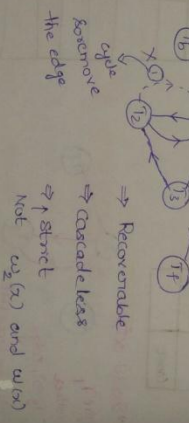 Tb
X T1
cycle
so remove
the edge
T2
T3
Tf
⇒ Recoverable
⇒ Cascadeless
⇒ ↑ strict
Not w2(x) and w(x)